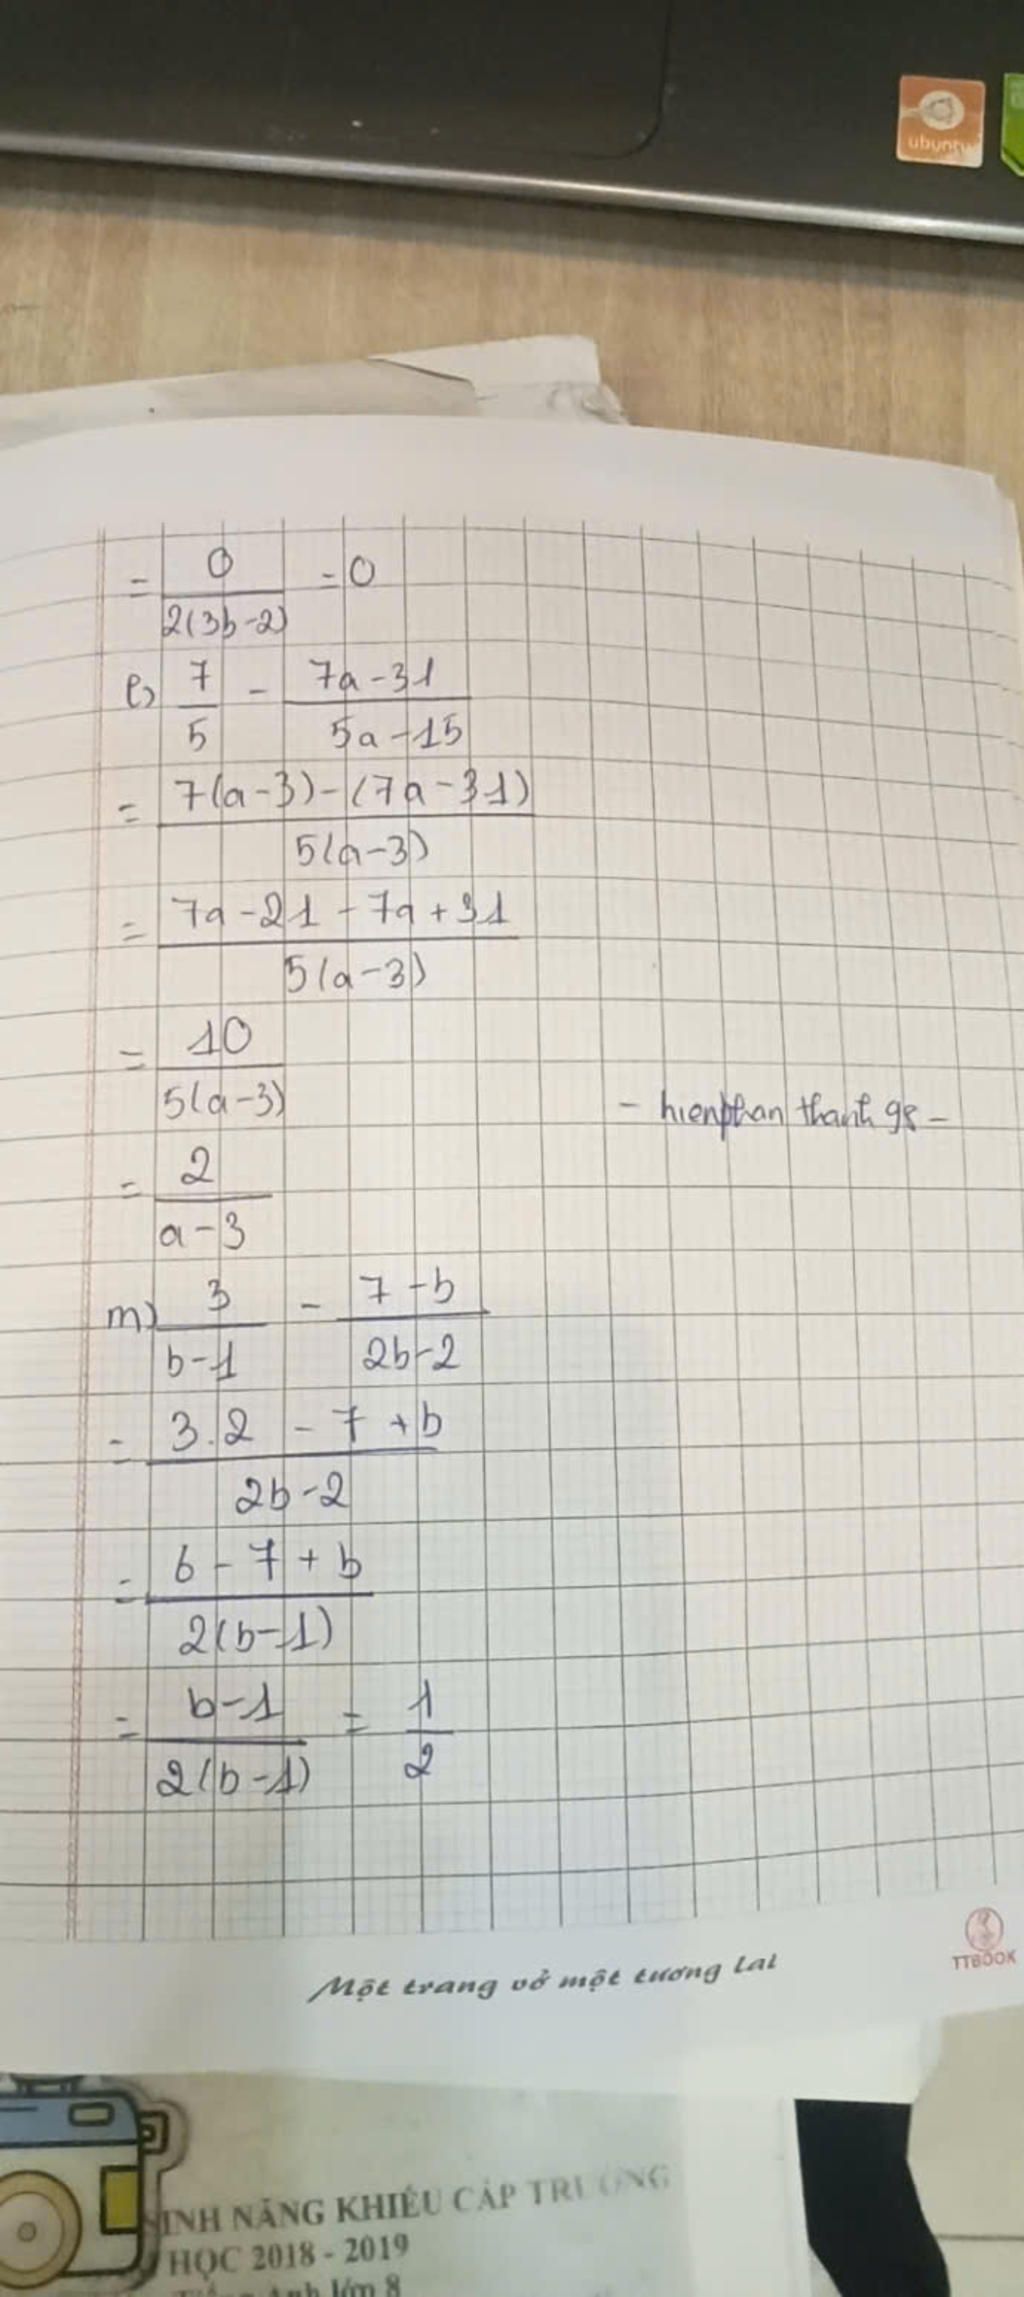 ubuntu
= 0/2(3b-2) = 0
l) 7/5 - (7a-31)/(5a-15)
= (7(a-3)-(7a-31))/(5(a-3))
= (7a-21-7a+31)/(5(a-3))
= 10/(5(a-3))
- hienphan thanh 98 -
= 2/(a-3)
m) 3/(b-1) - (7-b)/(2b-2)
= (3.2 - 7 + b)/(2b-2)
= (6-7+b)/(2(b-1))
= (b-1)/(2(b-1)) = 1/2
TTBOOK
Một trang vở một tương lai
SINH NĂNG KHIẾU CẤP TRƯỜNG
HỌC 2018 - 2019
Tiếng Anh lớp 8